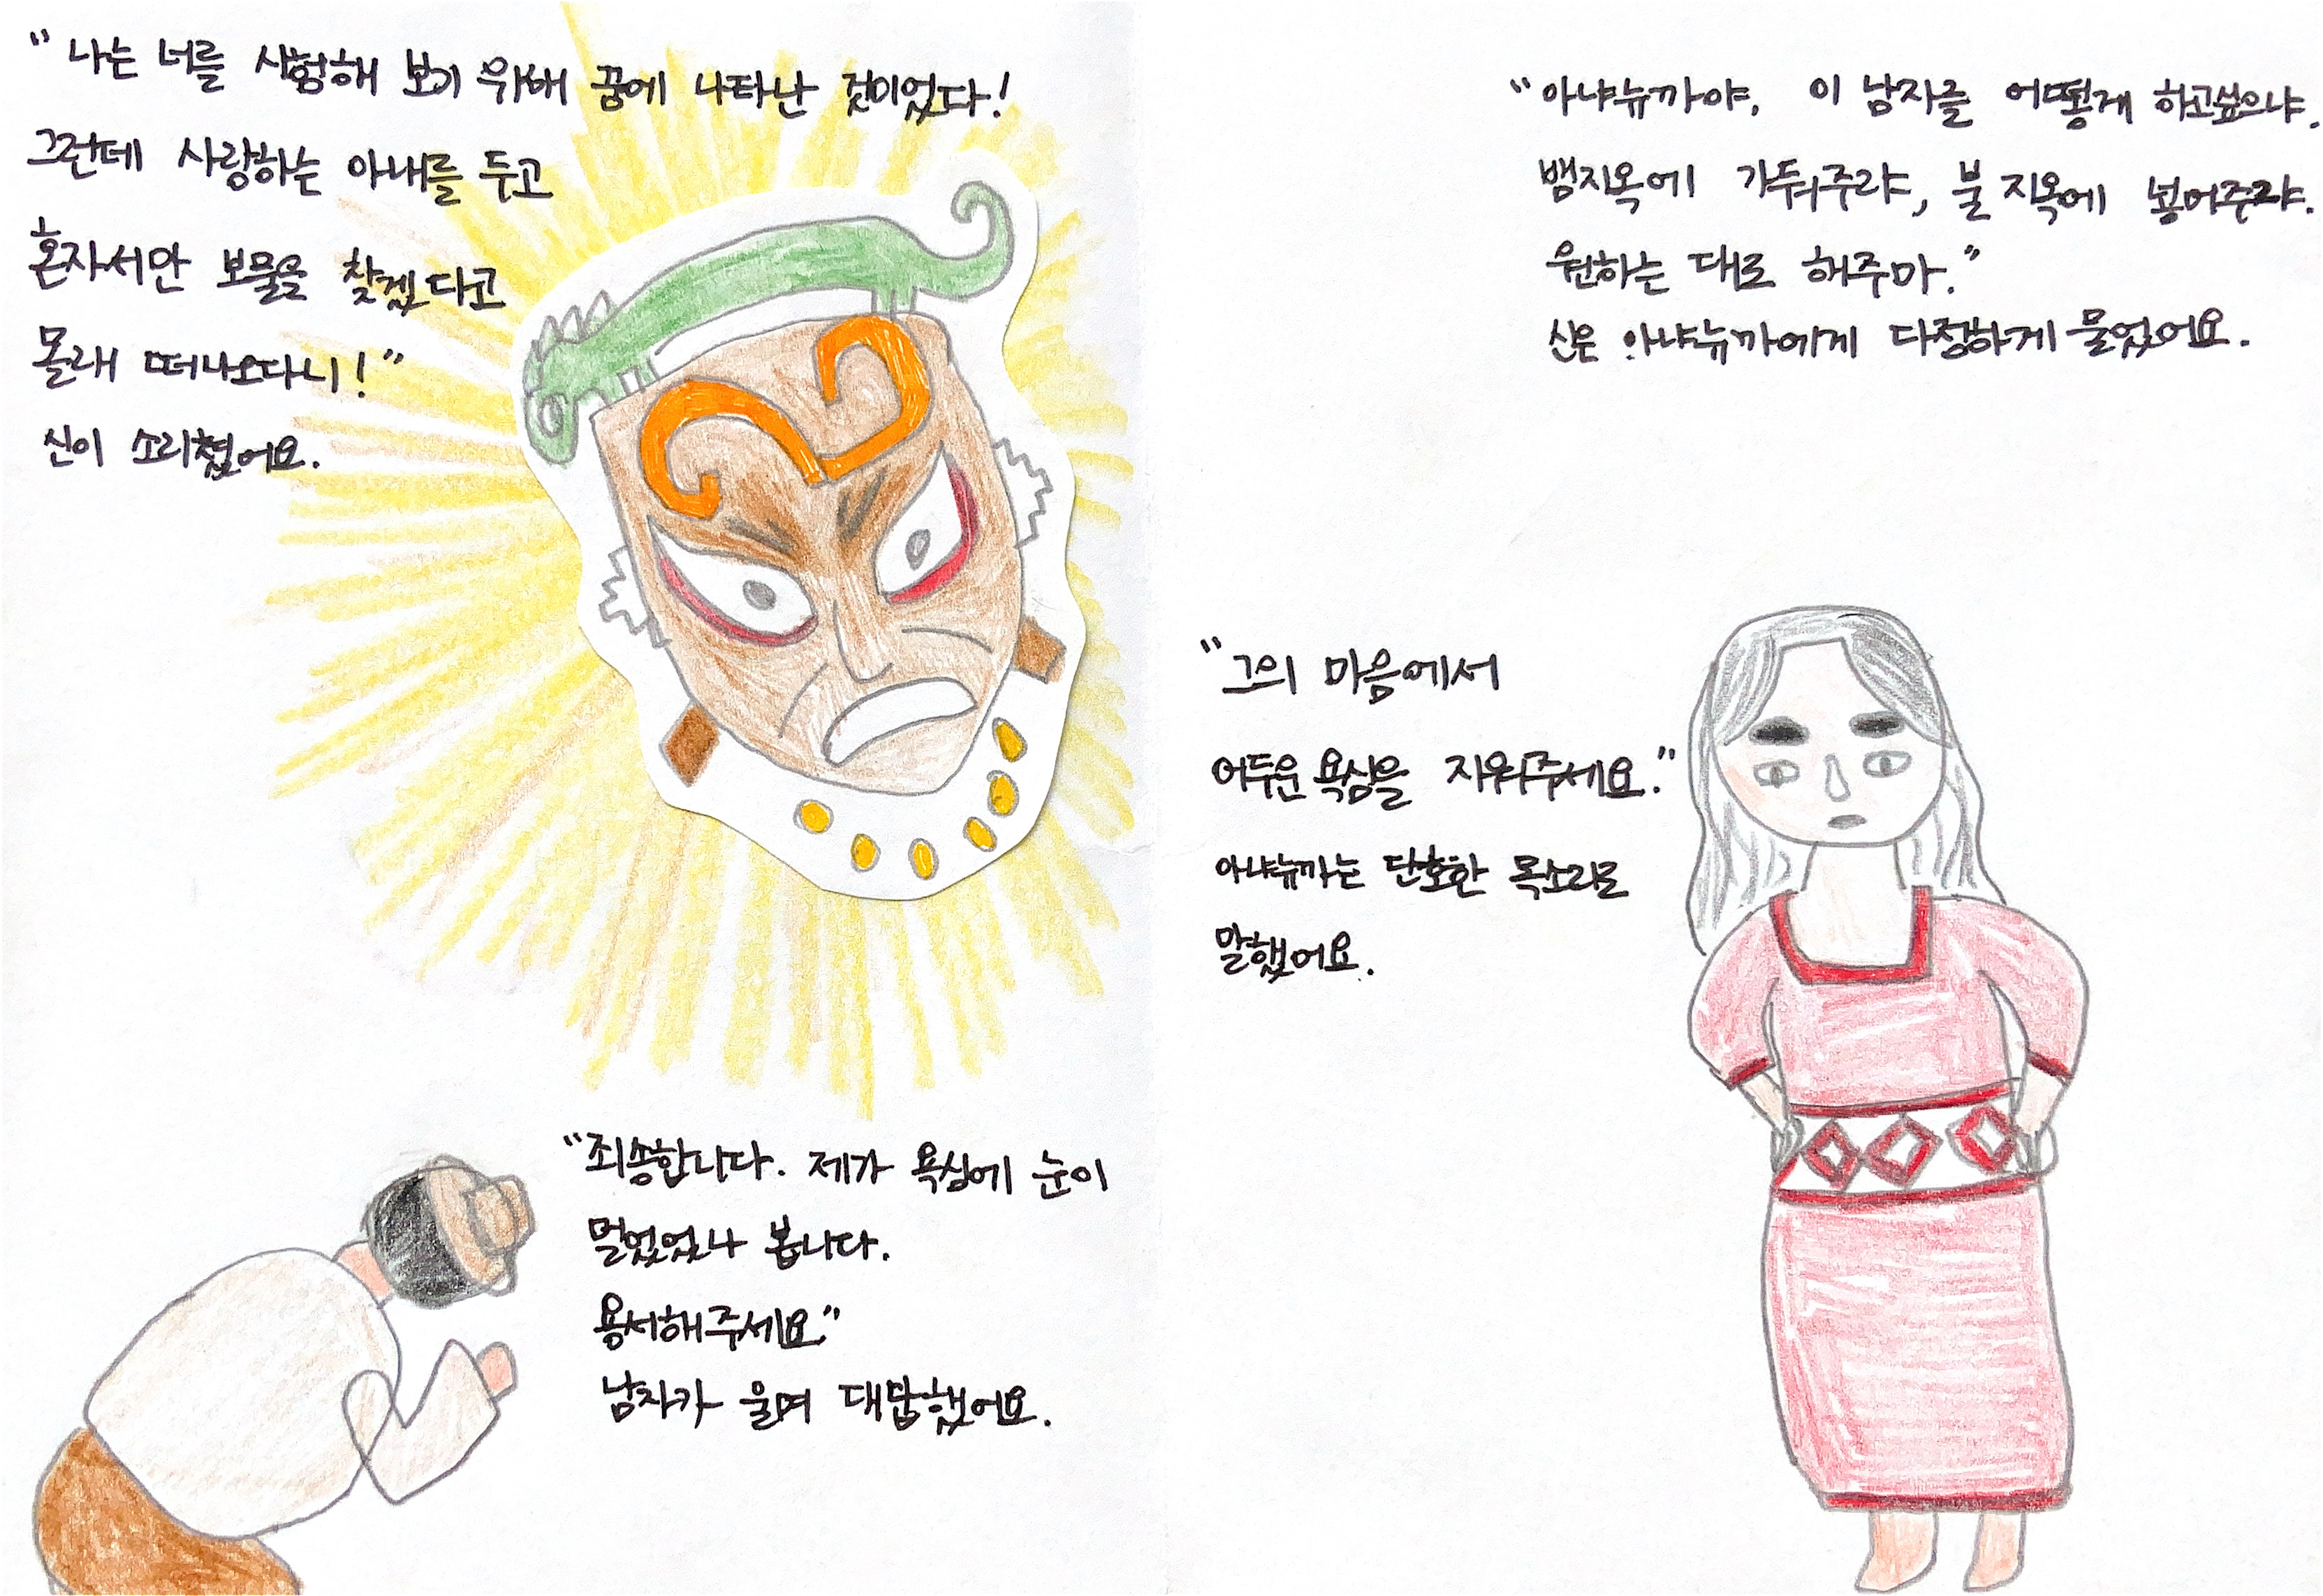 "나는 너를 시험해 보기 위해 꿈에 나타난 것이었다!
그런데 사랑하는 아내를 두고
혼자서만 보물을 찾겠다고
몰래 떠나오다니!"
신이 소리쳤어요.
"죄송합니다. 제가 욕심에 눈이
멀었었나 봅니다.
용서해주세요"
남자가 울며 대답했어요.
"아냐뉴까야, 이 남자를 어떻게 하고싶으냐.
뱀지옥에 가둬주랴, 불 지옥에 넣어주랴.
원하는 대로 해주마."
신은 아냐뉴까에게 다정하게 물었어요.
"그의 마음에서
어두운 욕심을 지워주세요."
아냐뉴까는 단호한 목소리로
말했어요.